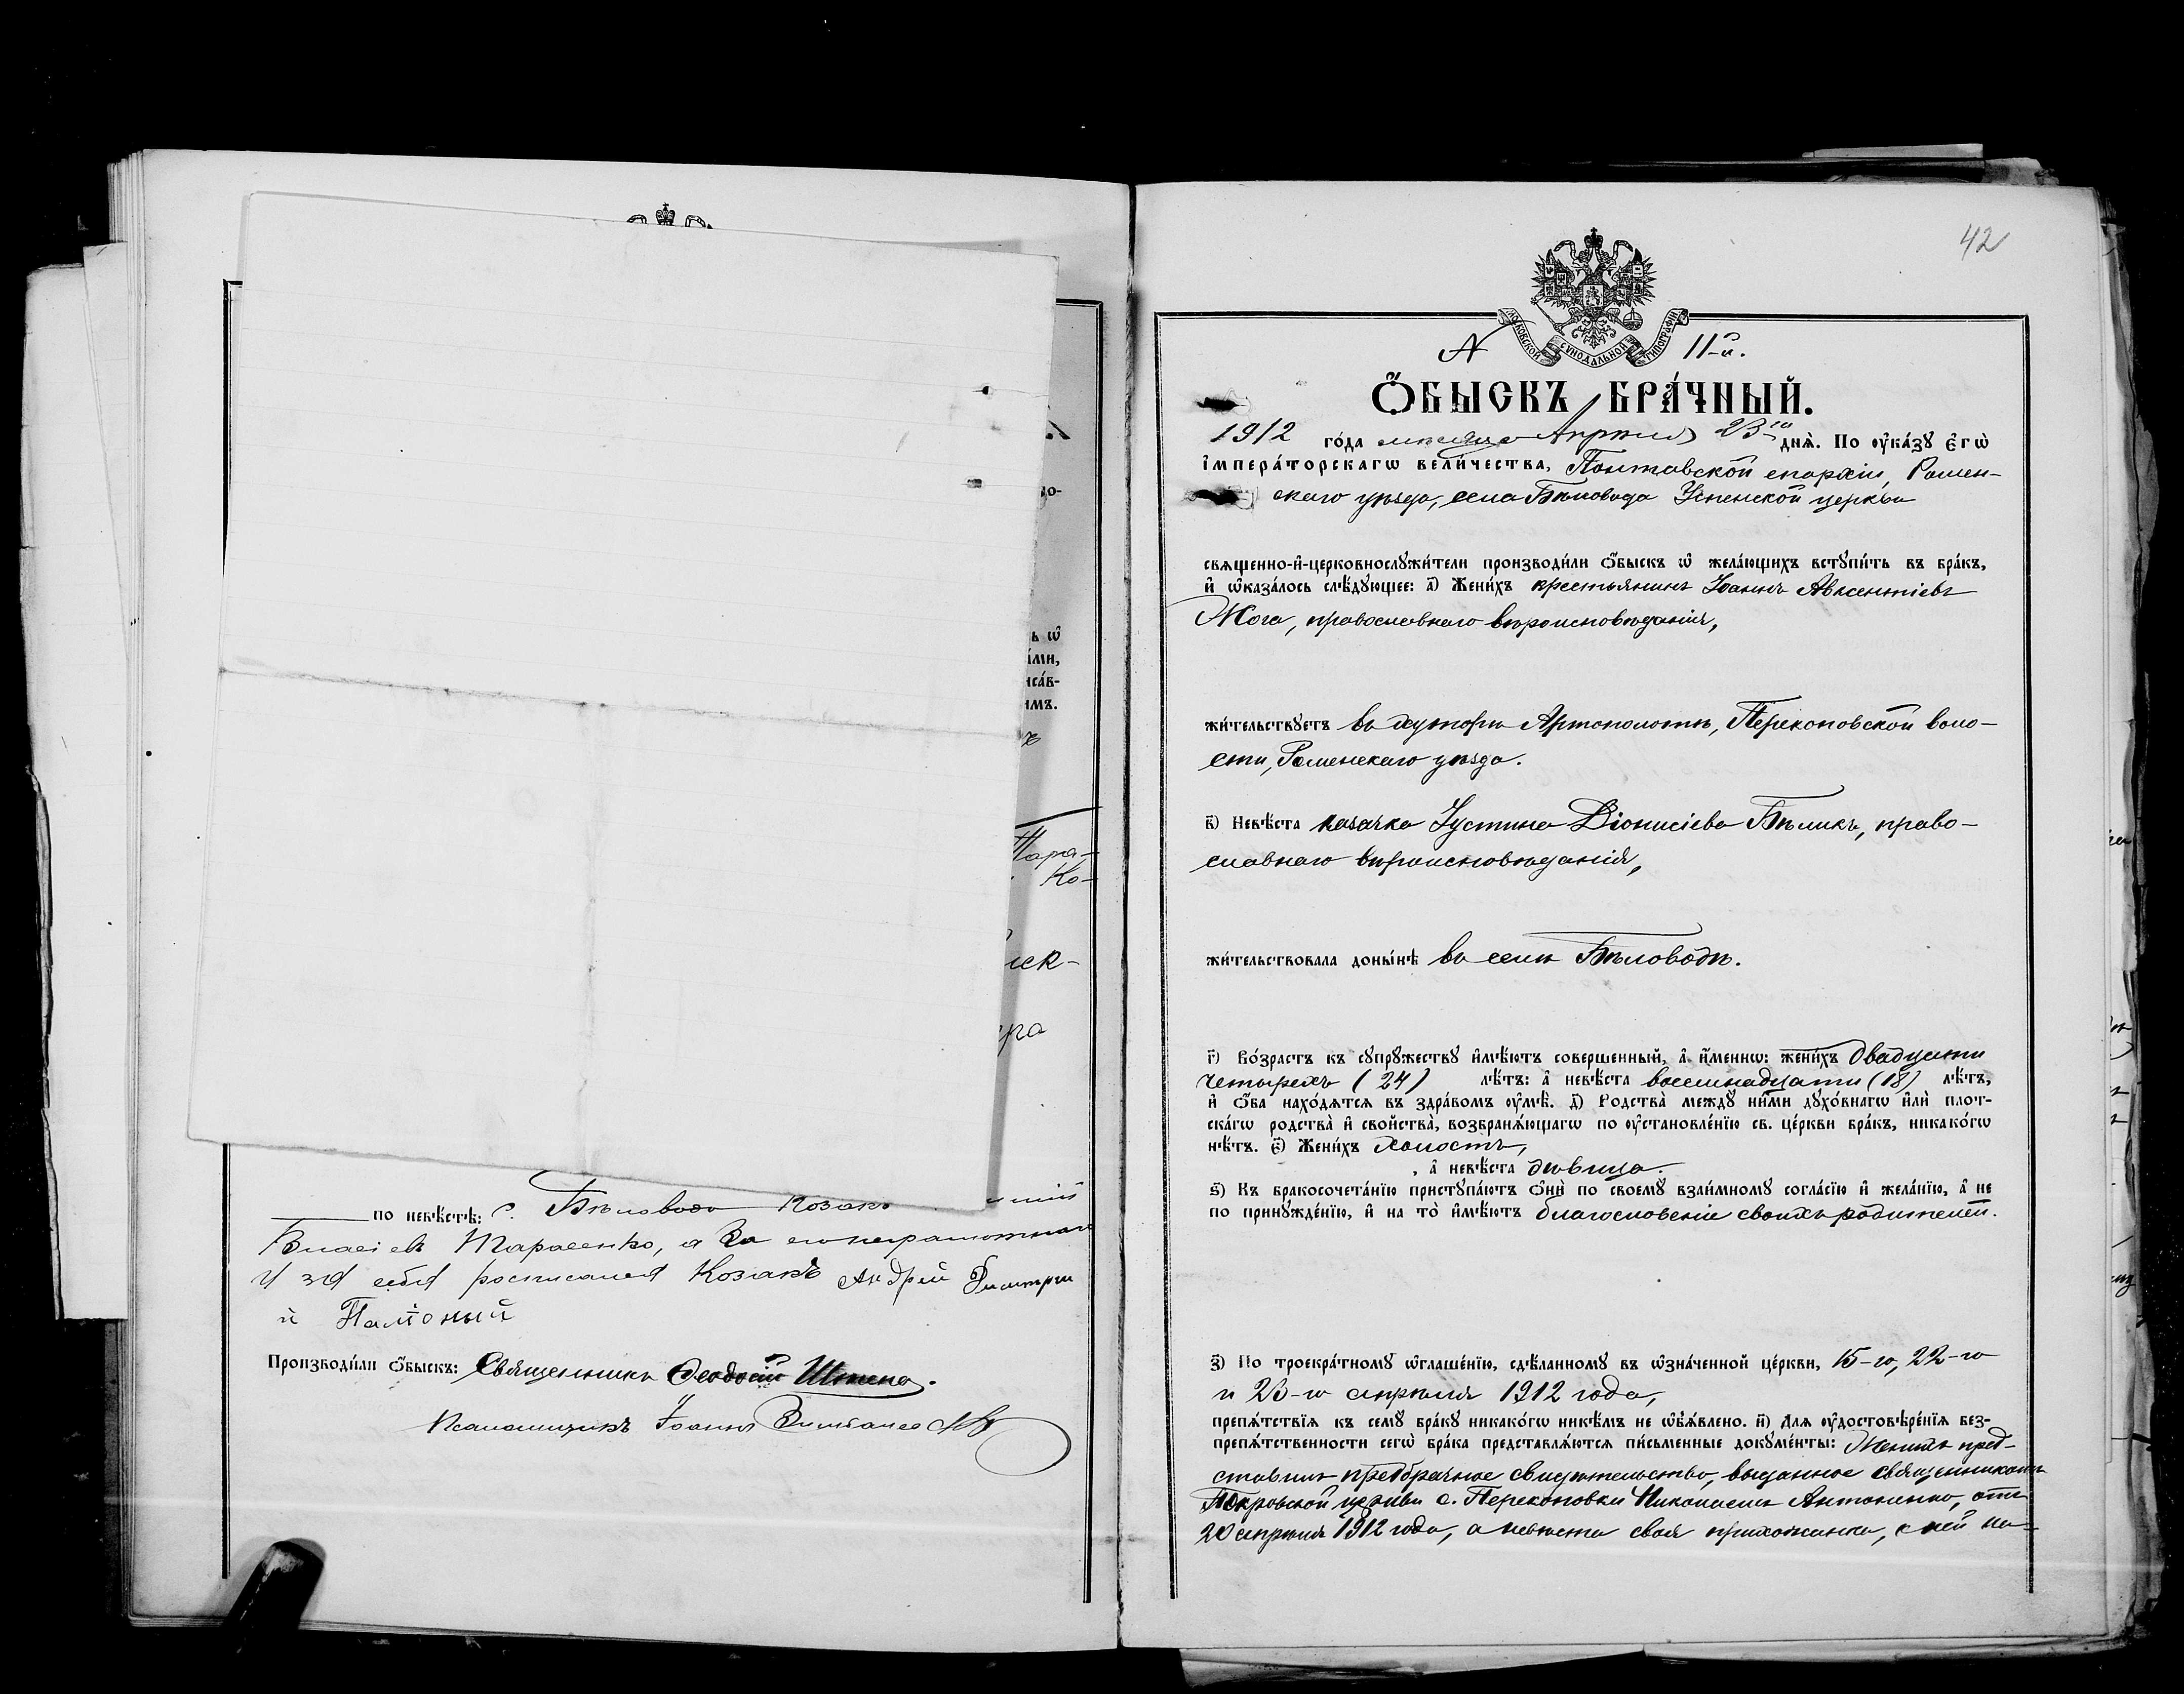 по невѣ́стѣ: с. Бѣловода Козакъ
Власіевъ Тарасенко, а за его неграмотнаго
и за себя росписался Козакъ Андрей Дмитри
й
Производи́ли ѻ҆́быскъ: Священникъ Ѳеодосій
Псаломщикъ Іоаннъ
зо-
ь ѡ҆
а́ми,
иса́в-
имъ.
Тара-
Ко-
лек-
42
МОСКОВСКОЙ СѴНОДАЛЬНОЙ ТИПОГРАФІИ
N 11-й.
Ѻ҆́БЫСКЪ БРА́ЧНЫЙ.
1912 го́да мѣсяца Апрѣля 23-го дня̀. По ᲂу҆ка́зꙋ є҆гѡ̀
і҆мпера́торскагѡ вели́чества, Полтавской епархіи, Ромен-
скаго уѣзда, села Бѣловода Успенской церкви
свѧщенно-и҆-церковнослꙋжи́тели производи́ли ѻ҆́быскъ ѡ҆ жела́ющихъ встꙋпи́ть въ бра́къ,
и҆ ѡ҆каза́лось слѣ́дꙋющее: а҃) Жени́хъ крестьянинъ Іоаннъ Авксентіевъ
Мога, православнаго вѣроисповѣданія,
жи́тельствꙋетъ въ хуторѣ Артополотѣ, Перекоповской воло-
сти, Роменскаго уѣзда.
в҃) Невѣ́ста казачка Іустина Діонисіева Бѣликъ, право-
славнаго вѣроисповѣданія,
жи́тельствовала доны́нѣ въ селѣ Бѣловодѣ.
г҃) Во́зрастъ къ сꙋпрꙋжествꙋ и҆мѣ́ютъ соверше́нный, а҆ и҆́меннѡ: жени́хъ двадцати
четырехъ (24) лѣ́тъ: а҆ невѣ́ста восемнадцати (18) лѣ́тъ,
и҆ ѻ҆́ба нахо́дятся въ здра́вомъ ᲂу҆мѣ̀. д҃) Родства̀ междꙋ̀ ни́ми дꙋхо́внагѡ и҆лѝ плот-
ска́гѡ родства̀ и҆ сво́йства̀, возбраня́ющагѡ по ᲂу҆становле́нїю св. це́ркви бра́къ, никако́гѡ
нѣ́тъ. є҃) Жени́хъ холостъ,
, а҆ невѣ́ста дѣвица.
ѕ҃) Къ бракосочета́нїю пристꙋпа́ютъ ѻ҆нѝ по своемꙋ̀ взаи́мномꙋ согла́сїю и҆ жела́нїю, а҆ не
по принꙋжде́нїю, и҆ на то̀ и҆мѣ́ютъ благословеніе своихъ родителей.
з҃) По троекра́тномꙋ ѡ҆глаше́нїю, сдѣ́ланномꙋ въ ѡ҆зна́ченной це́ркви, 15-го, 22-го
и 23-го апрѣля 1912 года,
препя́тствїя къ семꙋ̀ бра́кꙋ никако́гѡ никѣ́мъ не ѡ҆б̾я́влено. и҃) Для ᲂу҆достовѣре́нїя без-
препя́тственности сегѡ̀ бра́ка представля́ются пи́сьменные докꙋме́нты: Женихъ пред-
ставилъ предбрачное свидѣтельство, выданное священникомъ
Покровской церкви с. Перекоповки Николаемъ Антоненко, отъ
20 апрѣля 1912 года, а невѣста своя прихожанка, о ней на-